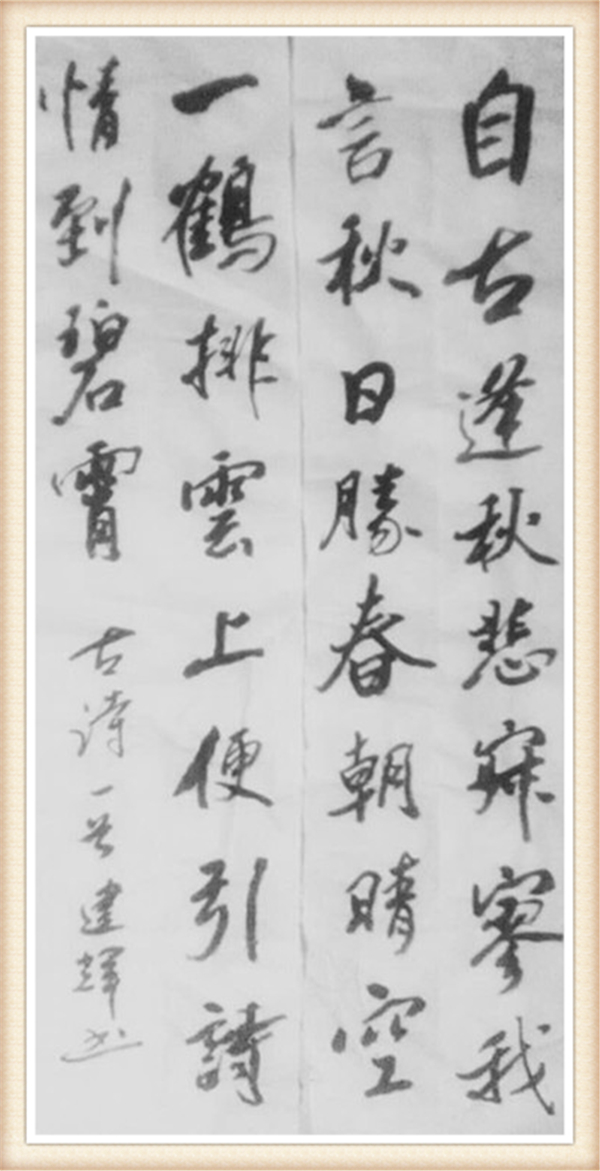 自古逢秋悲寂寥我
言秋日勝春朝晴空
一鶴排雲上便引詩
情到碧霄
古詩一首建輝书